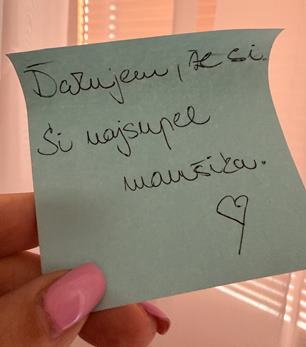 Ďakujem, že si.
Si najsuper
mamička.